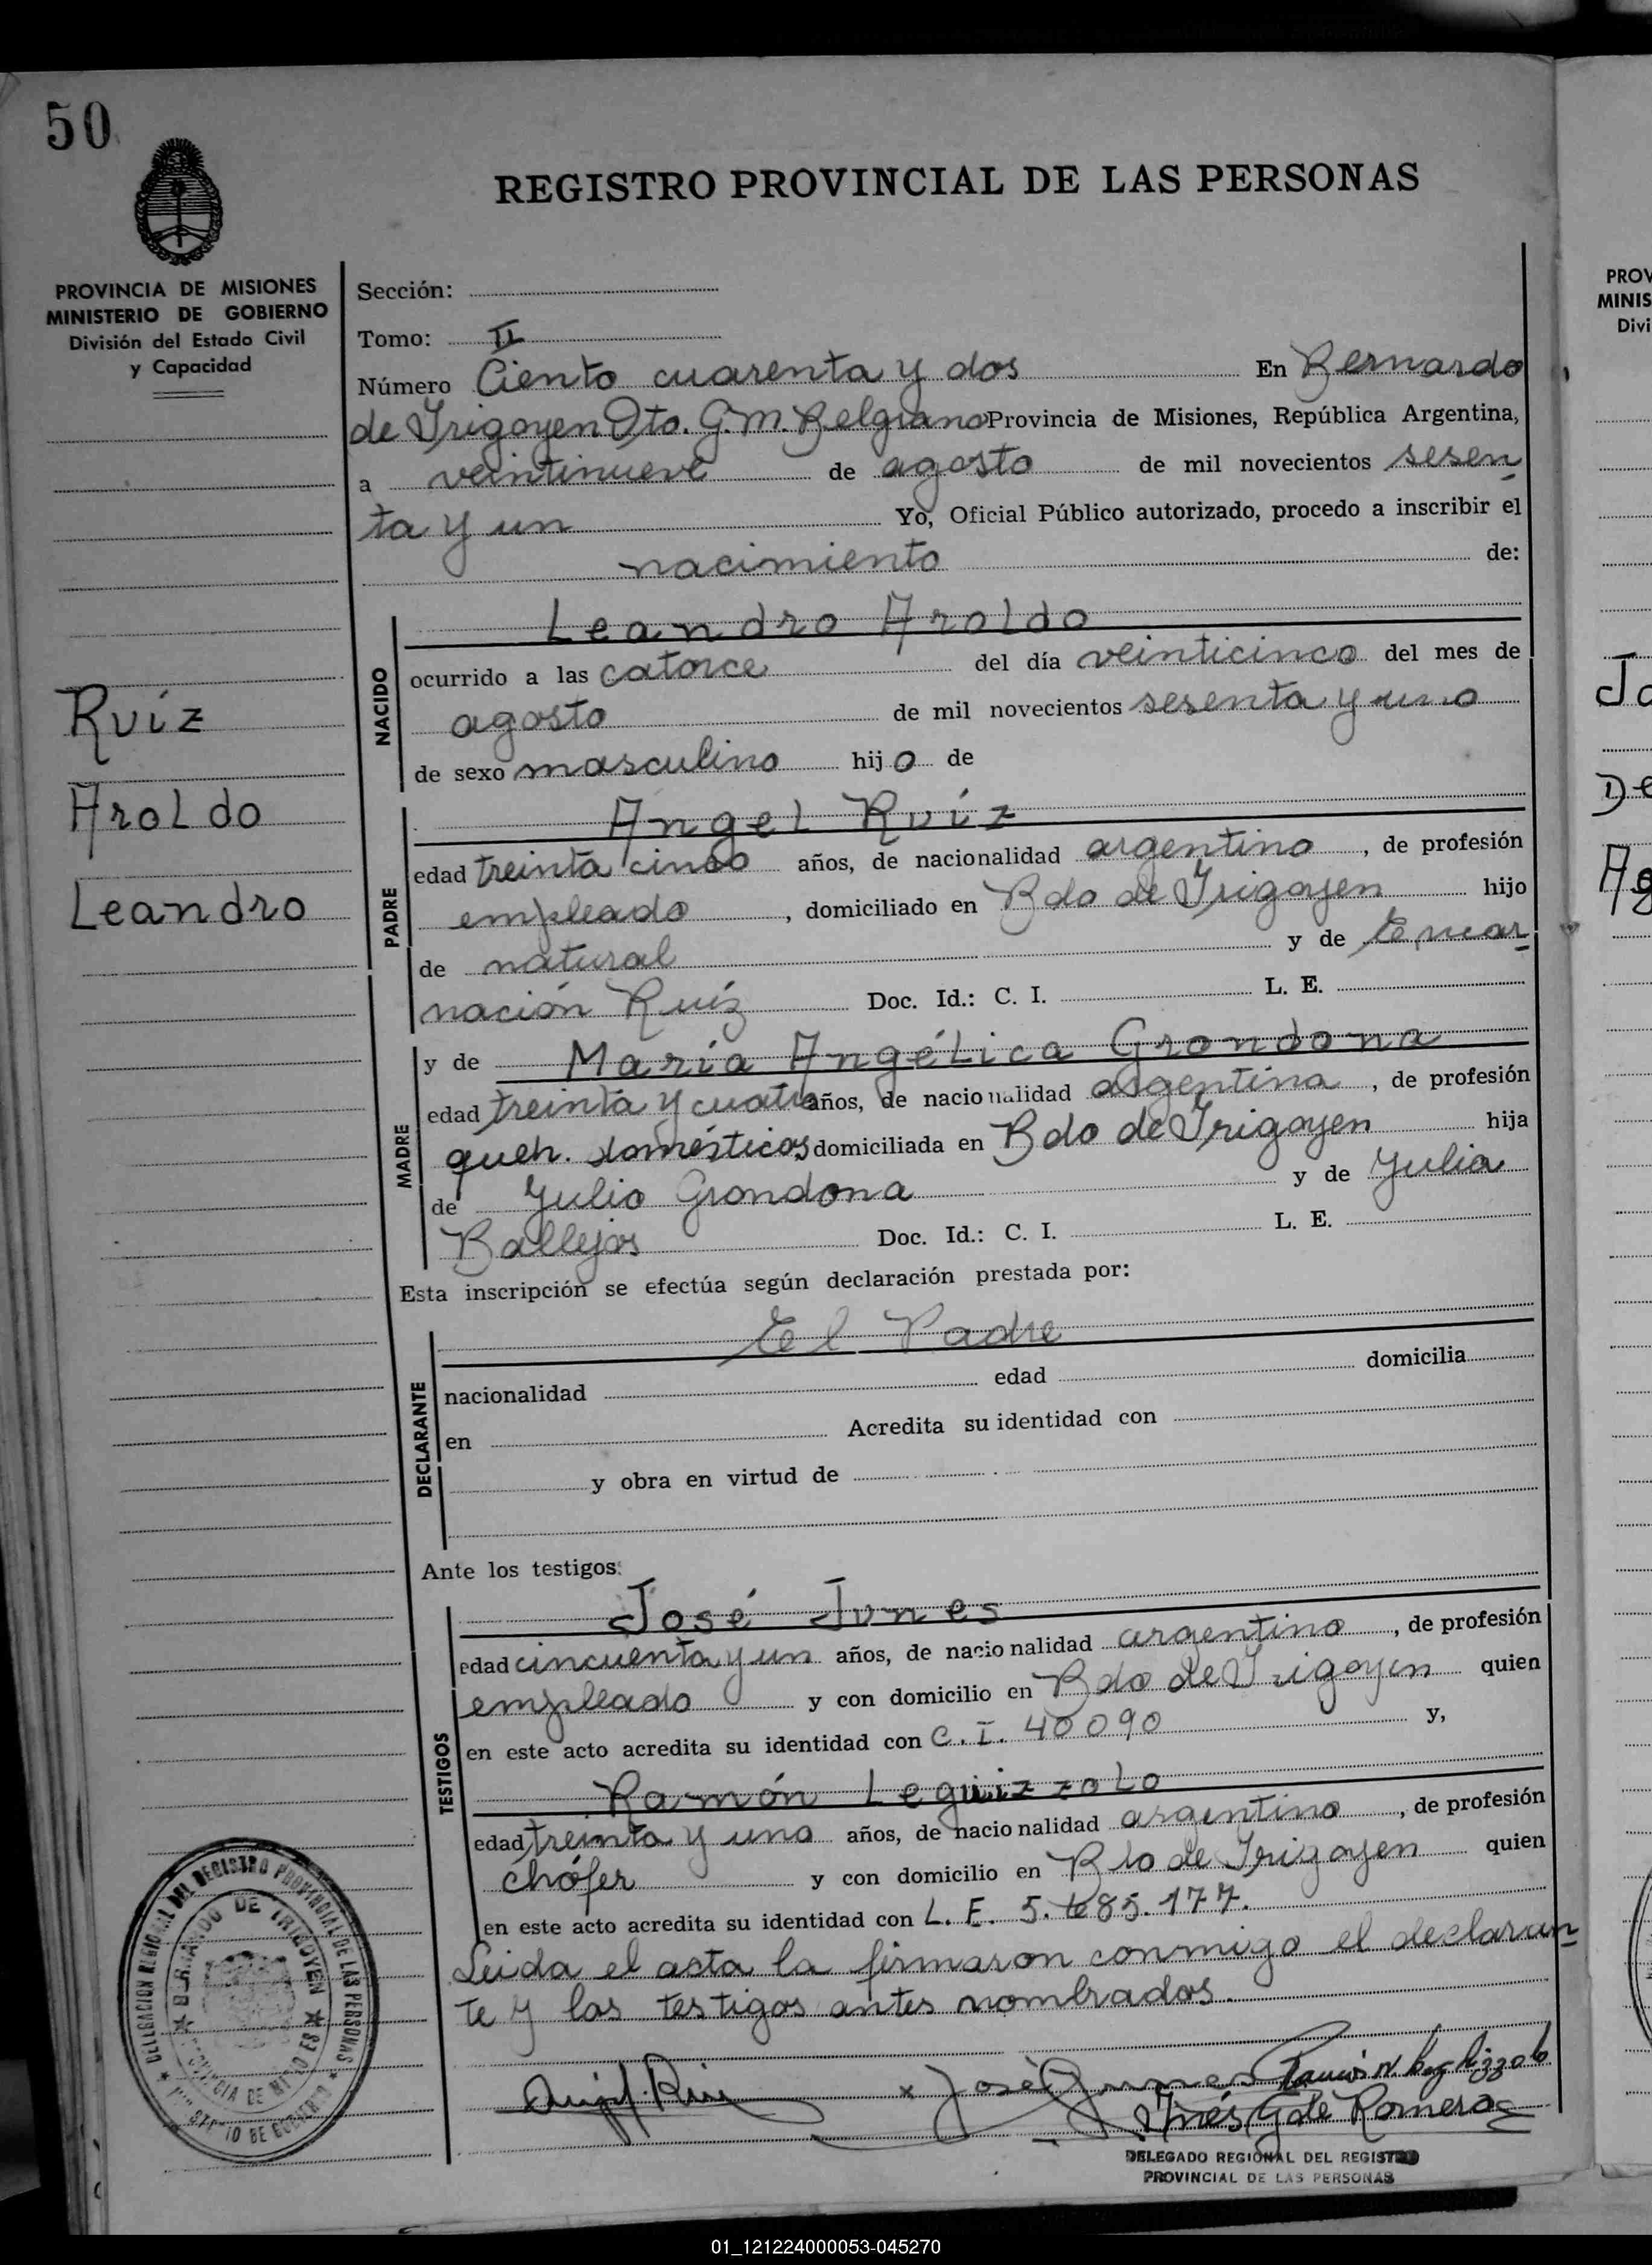 50
REGISTRO PROVINCIAL DE LAS PERSONAS
PROVINCIA DE MISIONES
MINISTERIO DE GOBIERNO
División del Estado Civil
y Capacidad
Ruíz
Aroldo
Leandro
Sección:
Tomo: II
Número Ciento cuarenta y dos En Bernardo
de Irigoyen Dto. G.M. Belgrano Provincia de Misiones, República Argentina,
a veintinueve de agosto de mil novecientos sesen
ta y un Yo, Oficial Público autorizado, procedo a inscribir el
nacimiento de:
NACIDO
Leandro Aroldo
ocurrido a las catorce del día veinticinco del mes de
agosto de mil novecientos sesenta y uno
de sexo masculino hijo de
PADRE
Angel Ruíz
edad treinta cinco años, de nacionalidad argentino, de profesión
empleado, domiciliado en Bdo de Irigoyen hijo
de natural y de
nación Ruíz Doc. Id.: C. I. L. E.
MADRE
y de María Angélica Grondona
edad treinta y cuatro años, de nacionalidad argentina, de profesión
queh. domésticos domiciliada en Bdo de Irigoyen hija
de Julio Grondona y de Julia
Ballejos Doc. Id.: C. I. L. E.
Esta inscripción se efectúa según declaración prestada por:
DECLARANTE
El Padre
nacionalidad edad domicilia
en Acredita su identidad con
y obra en virtud de
Ante los testigos:
TESTIGOS
José Junes
edad cincuenta y un años, de nacionalidad argentino, de profesión
empleado y con domicilio en Bdo de Irigoyen quien
en este acto acredita su identidad con C. I. 40090 y,
Ramón Leguizzolo
edad treinta y uno años, de nacionalidad argentino, de profesión
chófer y con domicilio en Bdo de Irigoyen quien
en este acto acredita su identidad con L. E.
Leida el acta la firmaron conmigo el declaran
te y los testigos antes nombrados.
Angel Ruiz
x José Junes
Inés G de Romero
DELEGADO REGIONAL DEL REGISTRO
PROVINCIAL DE LAS PERSONAS
DELEGACION REGIONAL DEL REGISTRO PROVINCIAL DE LAS PERSONAS
BERNARDO DE IRIGOYEN
PROVINCIA DE MISIONES
MINISTERIO DE GOBIERNO
PROV
MINIS
Divi
Jo
De
Ag
01_121224000053-045270